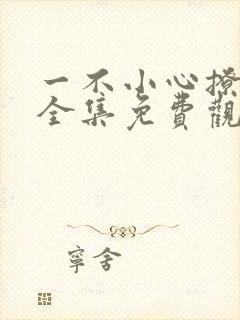 一不小心撩
全集免費觀
寧舍